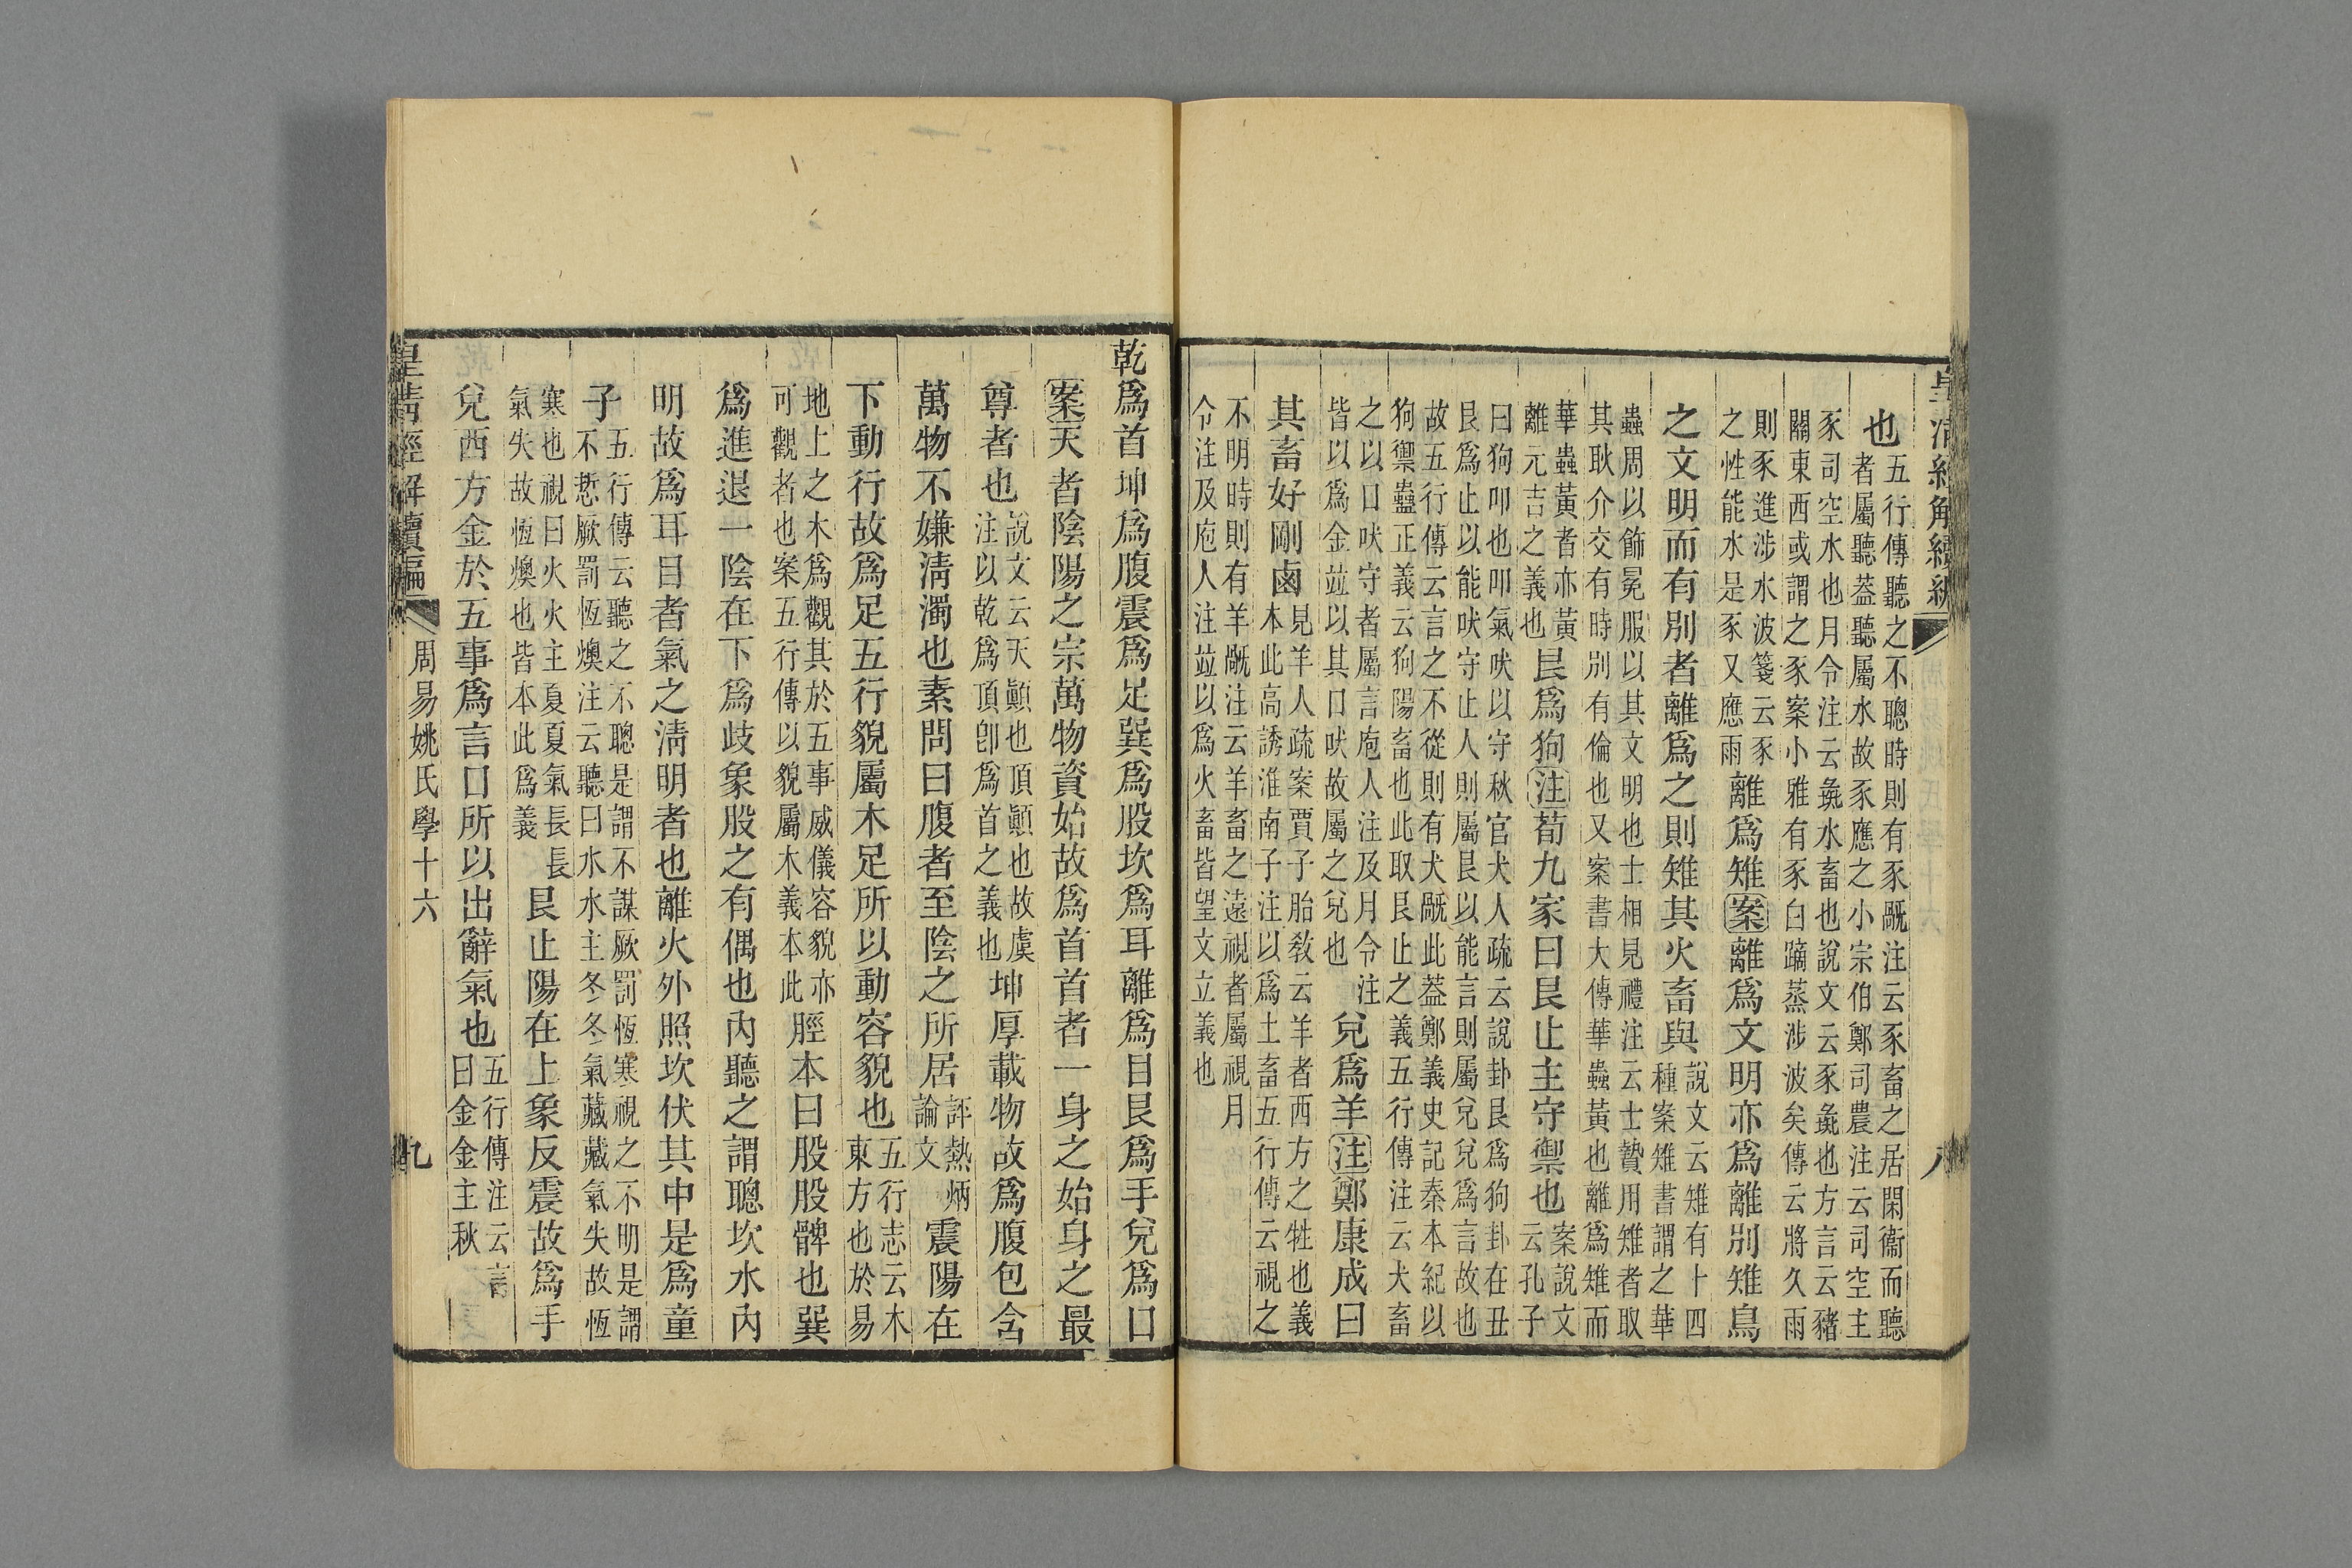 皇清經解續編
八
也
五行傳聽之不聰時則有豕旤注云豕畜之居閑衞而聽
者屬聽葢聽屬水故豕應之小宗伯鄭司農注云司空主
豕司空水也月令注云彘水畜也說文云豕彘也方言云豬
關東西或謂之豕案小雅有豕白蹢蒸涉波矣傳云將久雨
則豕進涉水波箋云豕
之性能水是豕又應雨
離爲雉案離爲文明亦爲離別雉鳥
之文明而有別者離爲之則雉其火畜與
說文云雉有十四
種案雉書謂之華
蟲周以飾冕服以其文明也士相見禮注云士贄用雉者取
其耿介交有時別有倫也又案書大傳華蟲黃也離爲雉而
華蟲黃者亦黃
離元吉之義也
艮爲狗注荀九家曰艮止主守禦也
案說文
云孔子
曰狗叩也叩氣吠以守秋官犬人疏云說卦艮爲狗卦在丑
艮爲止以能吠守止人則屬艮以能言則屬兌兌爲言故也
故五行傳云言之不從則有犬旤此葢鄭義史記秦本紀以
狗禦蠱正義云狗陽畜也此取艮止之義五行傳注云犬畜
之以口吠守者屬言庖人注及月令注
皆以爲金竝以其口吠故屬之兌也
兌爲羊注鄭康成曰
其畜好剛鹵
見羊人疏案賈子胎敎云羊者西方之牲也義
本此高誘淮南子注以爲土畜五行傳云視之
不明時則有羊旤注云羊畜之遠視者屬視月
令注及庖人注竝以爲火畜皆望文立義也
乾爲首坤爲腹震爲足巽爲股坎爲耳離爲目艮爲手兌爲口
案天者陰陽之宗萬物資始故爲首首者一身之始身之最
尊者也
說文云天顚也頂顚也故虞
注以乾爲頂卽爲首之義也
坤厚載物故爲腹包含
萬物不嫌淸濁也素問曰腹者至陰之所居
評熱炳
論文
震陽在
下動行故爲足五行貌屬木足所以動容貌也
五行志云木
東方也於易
地上之木爲觀其於五事威儀容貌亦
可觀者也案五行傳以貌屬木義本此
脛本曰股股髀也巽
爲進退一陰在下爲歧象股之有偶也內聽之謂聰坎水內
明故爲耳目者氣之淸明者也離火外照坎伏其中是爲童
子
五行傳云聽之不聰是謂不謀厥罰恆寒視之不明是謂
不悊厥罰恆燠注云聽曰水水主冬冬氣藏藏氣失故恆
寒也視曰火火主夏夏氣長長
氣失故恆燠也皆本此爲義
艮止陽在上象反震故爲手
兌西方金於五事爲言口所以出辭氣也
五行傳注云言
曰金金主秋
皇淸經解續編
周易姚氏學十六
九